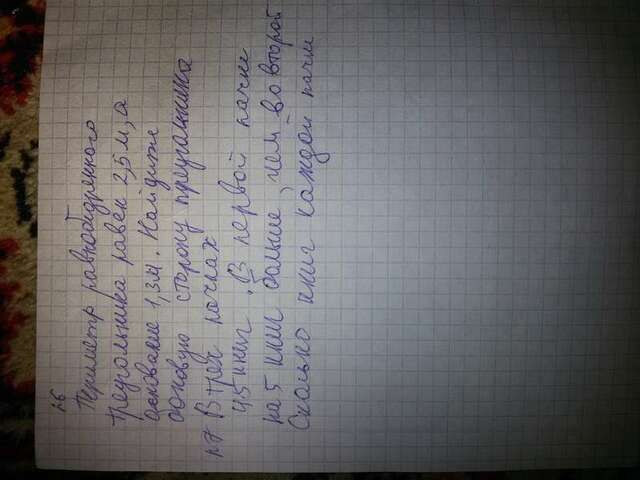 26
Периметр равнобедренного
треугольника равен 2,5 м, а
основание 1,3м. Найдите
боковую сторону треугольника
В трёх пачках
45 книг. В первой пачке
на 5 книг больше, чем во второй
Сколько книг каждой пачки